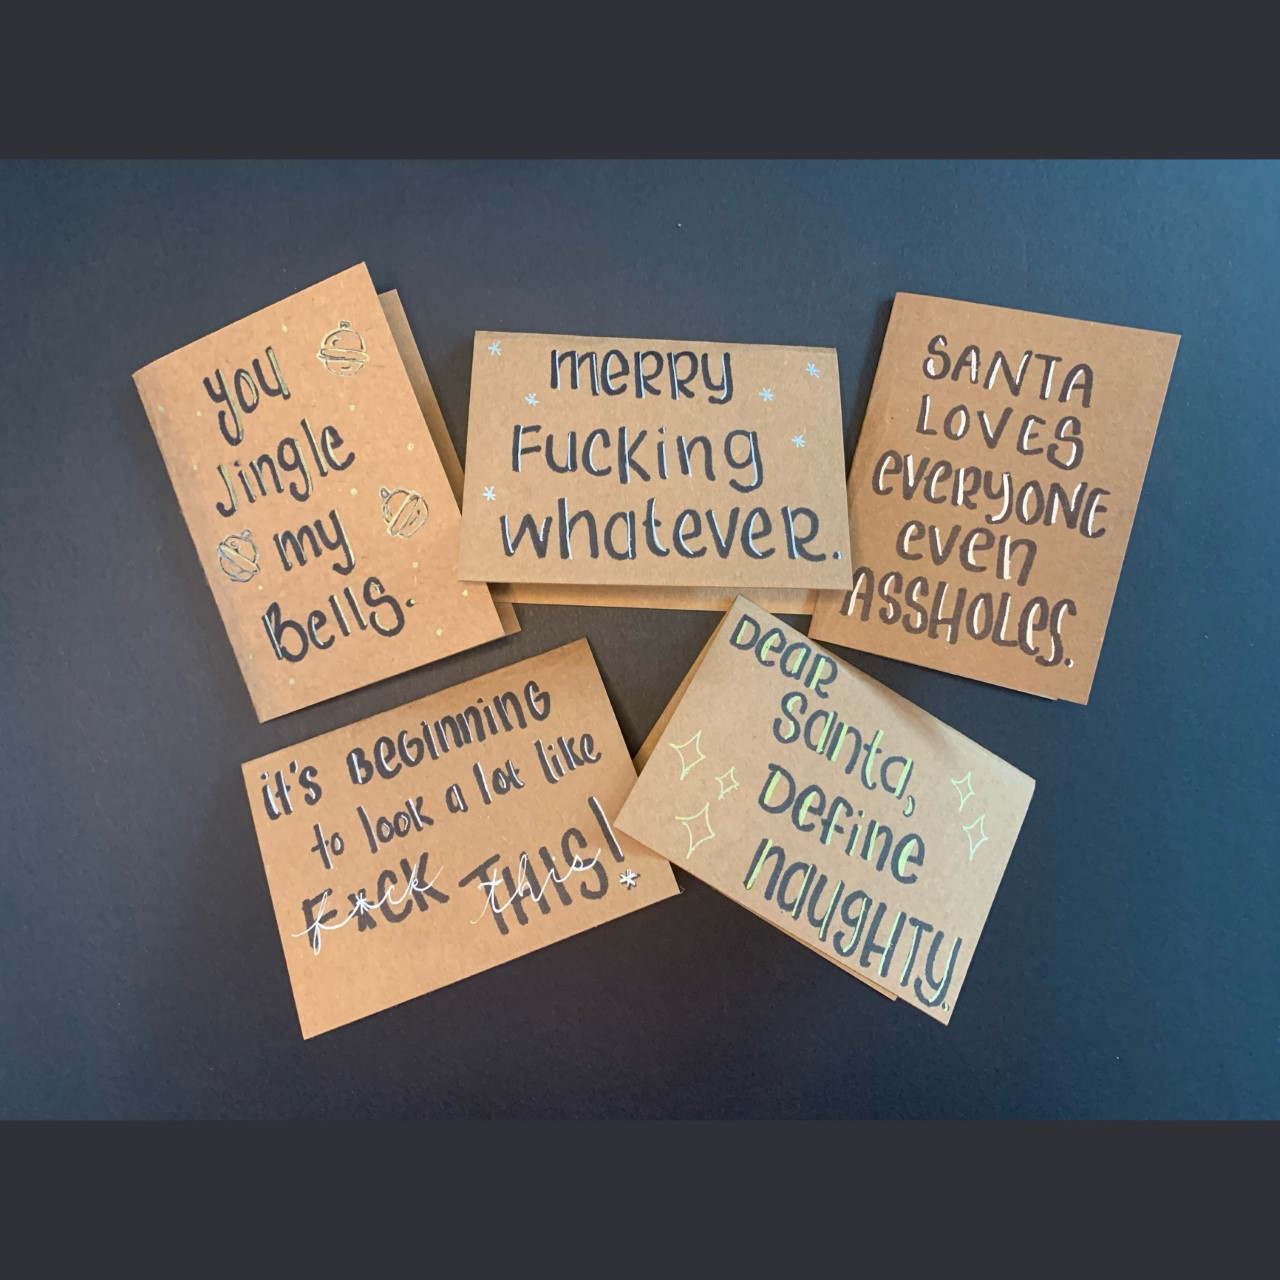 you
Jingle
my
Bells.
merry
Fucking
whatever.
SANTA
LOVES
everyone
even
ASSHOLES.
it's Beginning
to look a lot like
F*CK THIS!
f*ck this *
Dear
Santa,
Define
naughty.